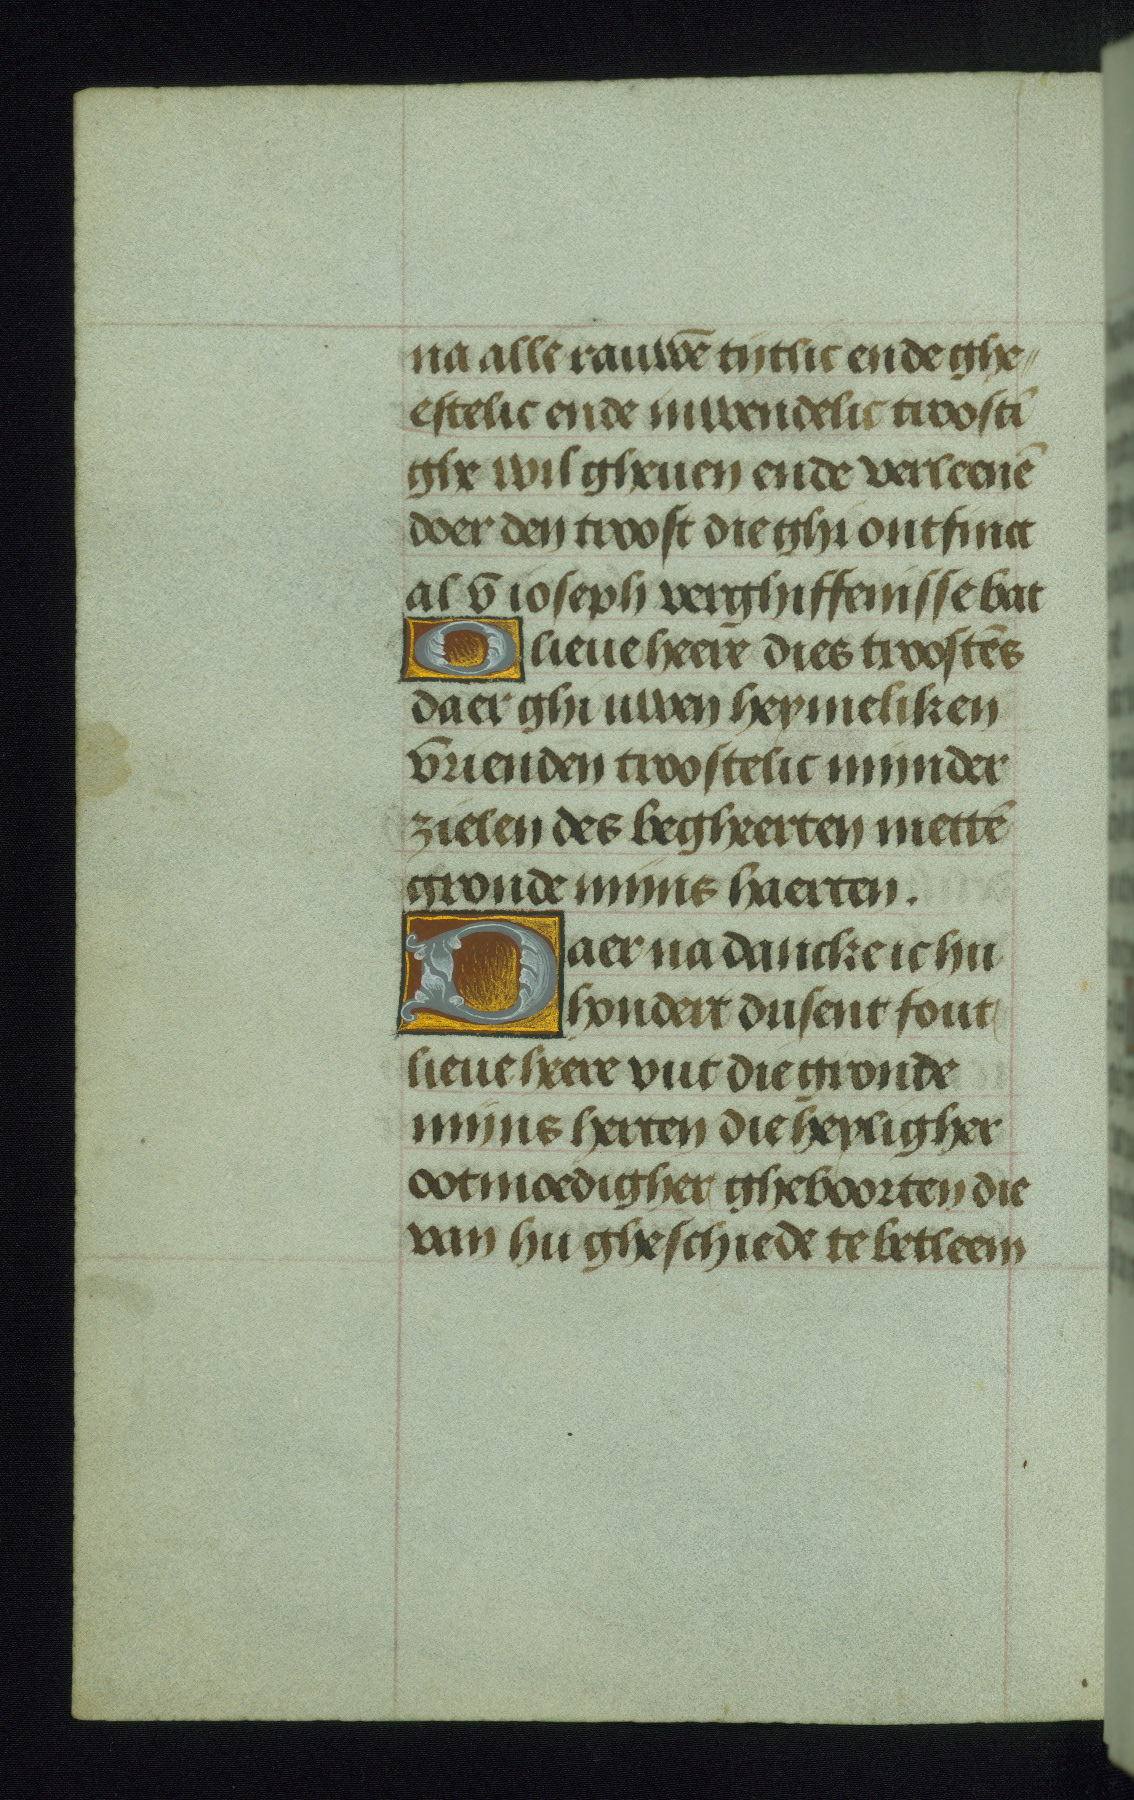 na alle rauwē tijtlic ende ghe//
estelic ende inwendelic troosti
ghe wil gheuen ende verleenē
doer den troost die ghi ontfinct
al v̄ ioseph verghiffenisse bat
O lieue heere dies troostēs
daer ghi uwen heymeliken
v̄rienden troostelic mijnder
zielen des begheerten mettē
gronde mijns haerten.
Daer na dancke ic hu
hondert dusent fout
lieue heere vut die gronde
mijns herten die heyligher
ootmoedigher gheboorten die
van hu gheschiede te betleem